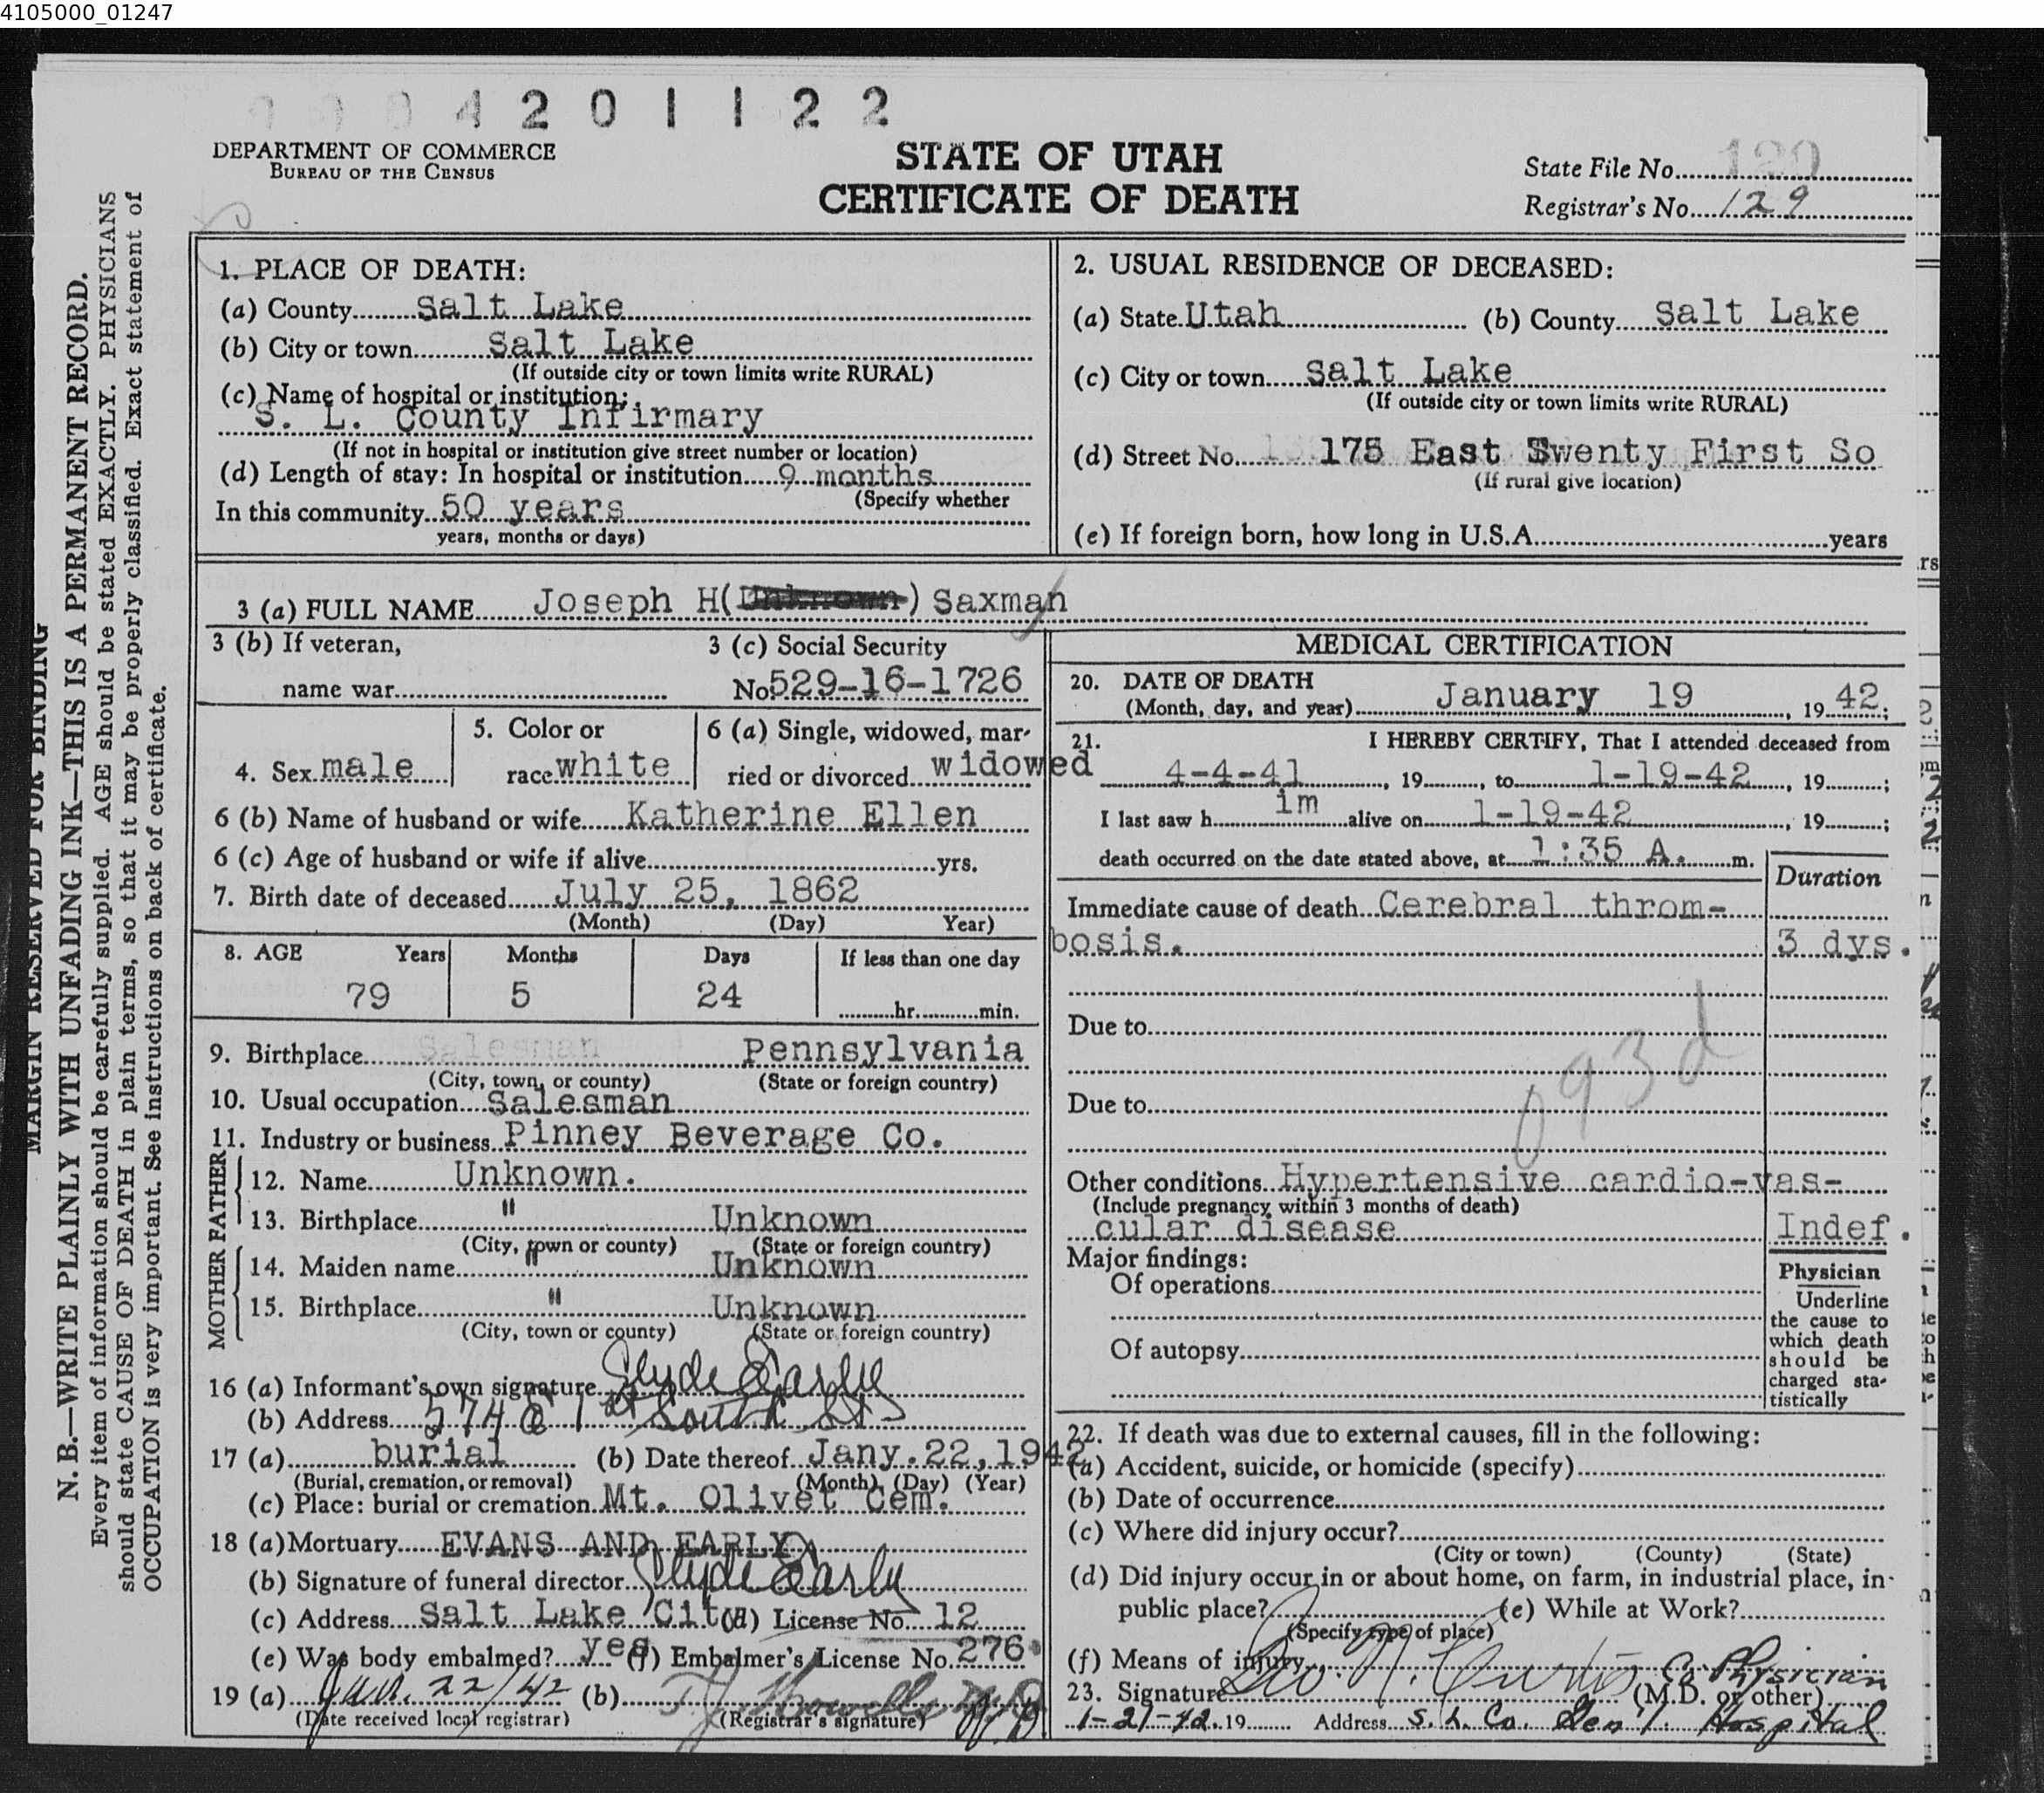 4105000_01247
0004201122
DEPARTMENT OF COMMERCE
BUREAU OF THE CENSUS
STATE OF UTAH
CERTIFICATE OF DEATH
State File No. 129
Registrar's No. 129
MARGIN RESERVED FOR BINDING
N. B.—WRITE PLAINLY WITH UNFADING INK—THIS IS A PERMANENT RECORD.
Every item of information should be carefully supplied. AGE should be stated EXACTLY. PHYSICIANS
should state CAUSE OF DEATH in plain terms, so that it may be properly classified. Exact statement of
OCCUPATION is very important. See instructions on back of certificate.
1. PLACE OF DEATH:
(a) County Salt Lake
(b) City or town Salt Lake
(If outside city or town limits write RURAL)
(c) Name of hospital or institution:
S. L. County Infirmary
(If not in hospital or institution give street number or location)
(d) Length of stay: In hospital or institution 9 months
(Specify whether
In this community 50 years
years, months or days)
2. USUAL RESIDENCE OF DECEASED:
(a) State Utah (b) County Salt Lake
(c) City or town Salt Lake
(If outside city or town limits write RURAL)
(d) Street No. 175 East Swenty First So
(If rural give location)
(e) If foreign born, how long in U.S.A. years
3 (a) FULL NAME Joseph H(Unknown) Saxman
3 (b) If veteran,
name war
3 (c) Social Security
No. 529-16-1726
4. Sex male
5. Color or
race white
6 (a) Single, widowed, mar-
ried or divorced widowed
6 (b) Name of husband or wife Katherine Ellen
6 (c) Age of husband or wife if alive yrs.
7. Birth date of deceased July 25, 1862
(Month) (Day) Year)
8. AGE Years Months Days If less than one day
79 5 24 hr. min.
9. Birthplace Salesman Pennsylvania
(City, town, or county) (State or foreign country)
10. Usual occupation Salesman
11. Industry or business Pinney Beverage Co.
FATHER
12. Name Unknown.
13. Birthplace " Unknown
(City, town or county) (State or foreign country)
MOTHER
14. Maiden name " Unknown
15. Birthplace " Unknown
(City, town or county) (State or foreign country)
16 (a) Informant's own signature Clyde Early
(b) Address 574 E 1st South St
17 (a) burial (b) Date thereof Jany. 22, 1942
(Burial, cremation, or removal) (Month) (Day) (Year)
(c) Place: burial or cremation Mt. Olivet Cem.
18 (a) Mortuary EVANS AND EARLY
(b) Signature of funeral director Clyde Early
(c) Address Salt Lake City (d) License No. 12
(e) Was body embalmed? yes (f) Embalmer's License No. 276
19 (a) Jan. 22/42 (b) T.J. Howells M.D.
(Date received local registrar) (Registrar's signature)
MEDICAL CERTIFICATION
20. DATE OF DEATH
(Month, day, and year) January 19, 1942;
21. I HEREBY CERTIFY, That I attended deceased from
4-4-41, 19, to 1-19-42, 19;
I last saw him alive on 1-19-42, 19;
death occurred on the date stated above, at 1:35 A. m.
Duration
Immediate cause of death Cerebral throm-
bosis. 3 dys.
Due to
093d
Due to
Other conditions Hypertensive cardio-vas-
(Include pregnancy within 3 months of death)
cular disease Indef.
Major findings:
Of operations
Of autopsy
Physician
Underline
the cause to
which death
should be
charged sta-
tistically
22. If death was due to external causes, fill in the following:
(a) Accident, suicide, or homicide (specify)
(b) Date of occurrence
(c) Where did injury occur?
(City or town) (County) (State)
(d) Did injury occur in or about home, on farm, in industrial place, in
public place? (e) While at Work?
(Specify type of place)
(f) Means of injury
23. Signature Geo. N. Curtis Co Physician
(M.D. or other)
1-21-42. 19 Address S. L. Co. Gen'l. Hospital